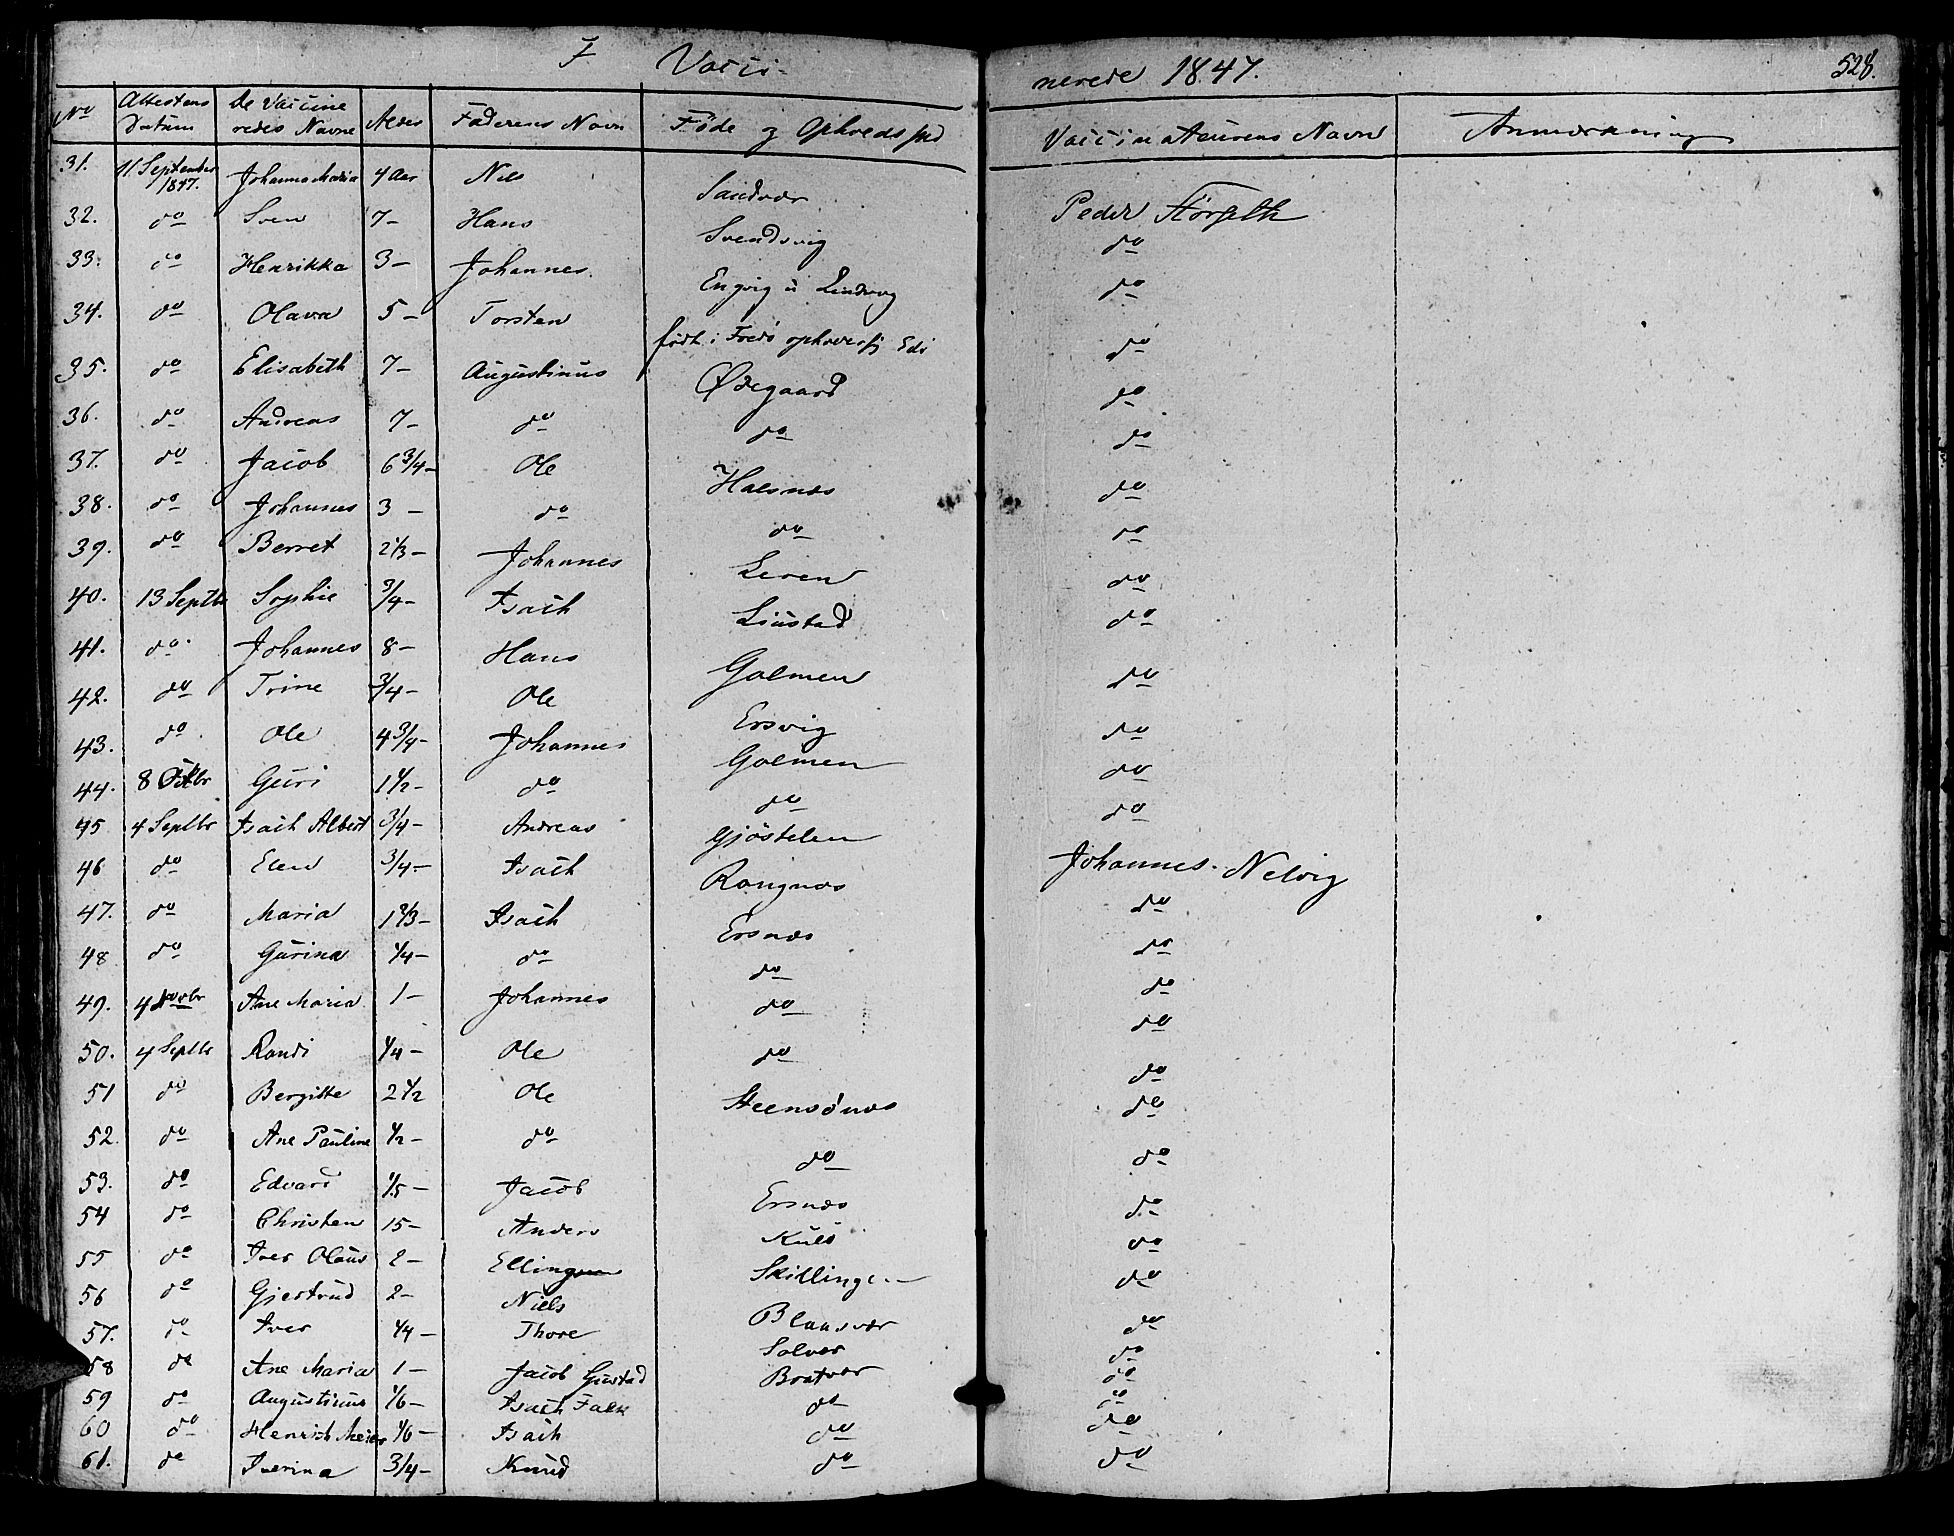 I Vacci- nerede 1847. 528.
No | Attestens Datum | De Vaccine redes Navne | Alder | Faderens Navn | Føde og Opholdssted | Vaccinateurens Navn | Anmærkning
31. | 11 September 1847. | Johanna Maria | 4 Aar | Nils | Sandvær | Peder
32. | do | Sven | 7- | Hans | Svendsvig | do
33. | do | Henrikka | 3- | Johannes | Engvig | do
34. | do | Olava | 5- | Torsten | født i | do
35. | do | Elisabeth | 7- | Augustinus | Ødegaard | do
36. | do | Andreas | 7- | do | do | do
37. | do | Jacob | 6 3/4- | Ole | Halsnæs | do
38. | do | Johannes | 3- | do | do | do
39. | do | Berret | 2 1/3- | Johannes | Leren | do
40. | 13 Septbr | Sophie | 3/4- | Isach | Liustad | do
41. | do | Johannes | 8- | Hans | Golmen | do
42. | do | Trine | 3/4- | Ole | Ersvig | do
43. | do | Ole | 4 3/4- | Johannes | Golmen | do
44. | 8 Oktbr | Guri | 1 1/2- | do | do | do
45 | 4 Septbr | Isach Albert | 3/4- | Andreas | Gjöstelen | Johannes Nelvig
46 | do | Elen | 3/4- | Isach | Rangnæs | do
47. | do | Maria | 1 2/3- | Isach | Ersnæs | do
48 | do | Gurina | 1/4- | do | do | do
49. | 4 Novbr | Ane Maria | 1- | Johannes | do | do
50. | 4 Septbr | Randi | 1/4- | Ole | do | do
51 | do | Bergitte | 2 1/2 | Ole | Steensönæs | do
52. | do | Ane Pauline | 1/2- | do | do | do
53. | do | Edvard | 1/5- | Jacob | Ersnæs | do
54 | do | Christen | 15- | Anders | Kulö | do
55 | do | Iver Olaus | 2- | Elling | Skillinge | do
56 | do | Gjertrud | 2- | Niels | Blaasvær | do
57. | do | Iver | 1/4- | Thore | Solvær | do
58 | do | Ane Maria | 1- | Jacob Gustad | Bratvær | do
59 | do | Augustinus | 1/6- | Isach Falk | do | do
60 | do | Henrich Meier | 1/6- | Isach | do | do
61. | do | Iverina | 3/4- | Knud | do | do